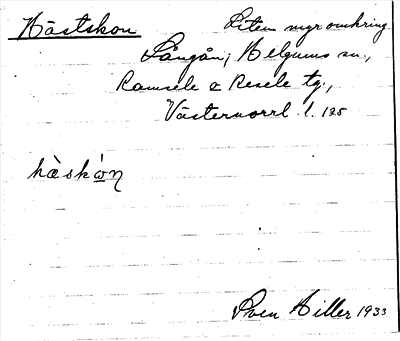 Hästskon Liten myr omkring
Långån, Helgums sn.,
Ramsele & Resele tg.,
Västernorrl. l. 125
hàskón
Sven Hiller 1933